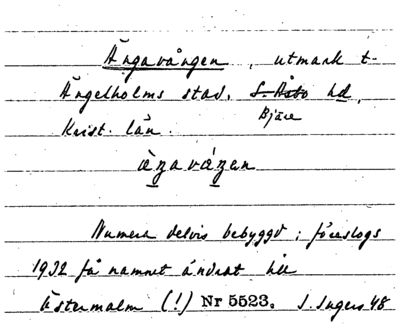 Ängavången, utmark t-
Ängelholms stad, S. Åsbo hd,
Bjäre
Krist. län.
àŋaváŋen
Numera delvis bebyggd; föreslogs
1932 få namnet ändrat till
Östermalm (!) Nr 5523. S. Ingers 48